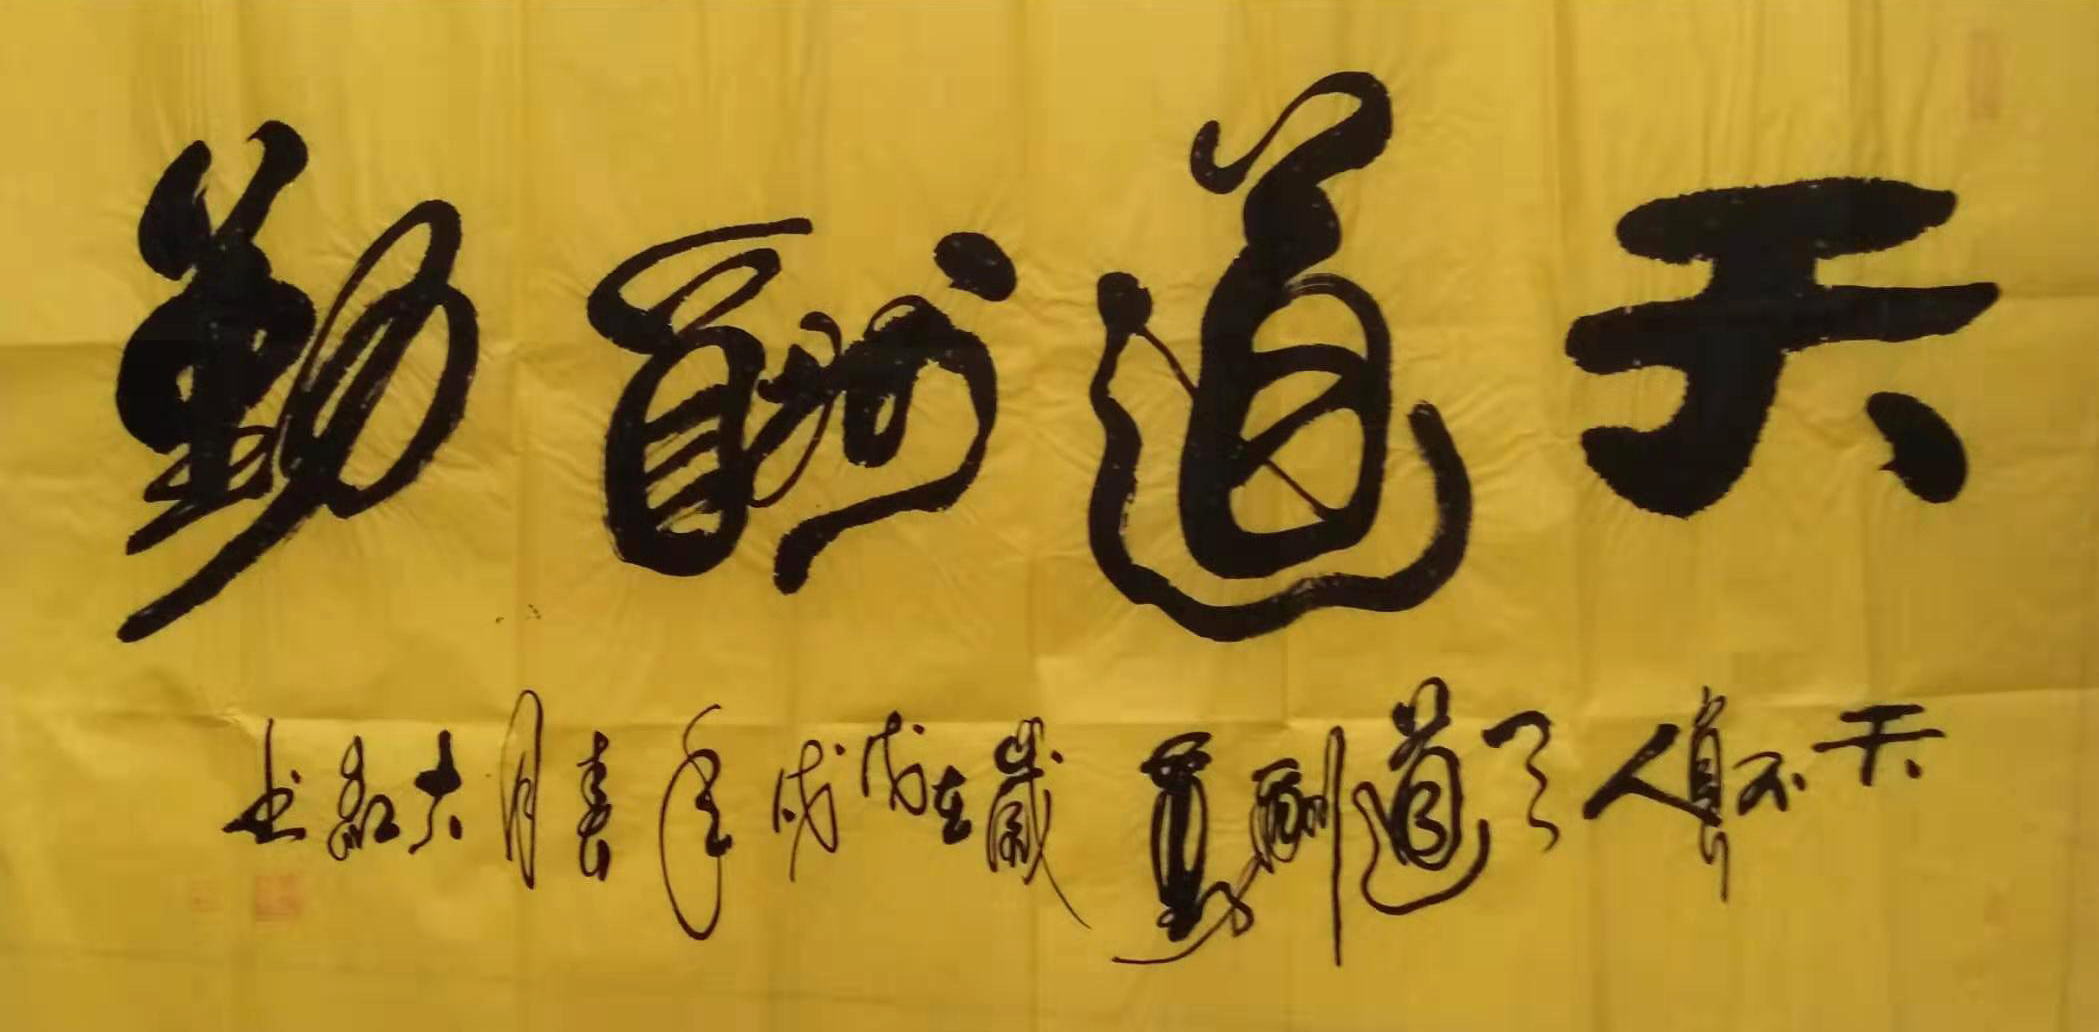 天道酬勤
天不負人天道酬勤歲在戊戌年春月六